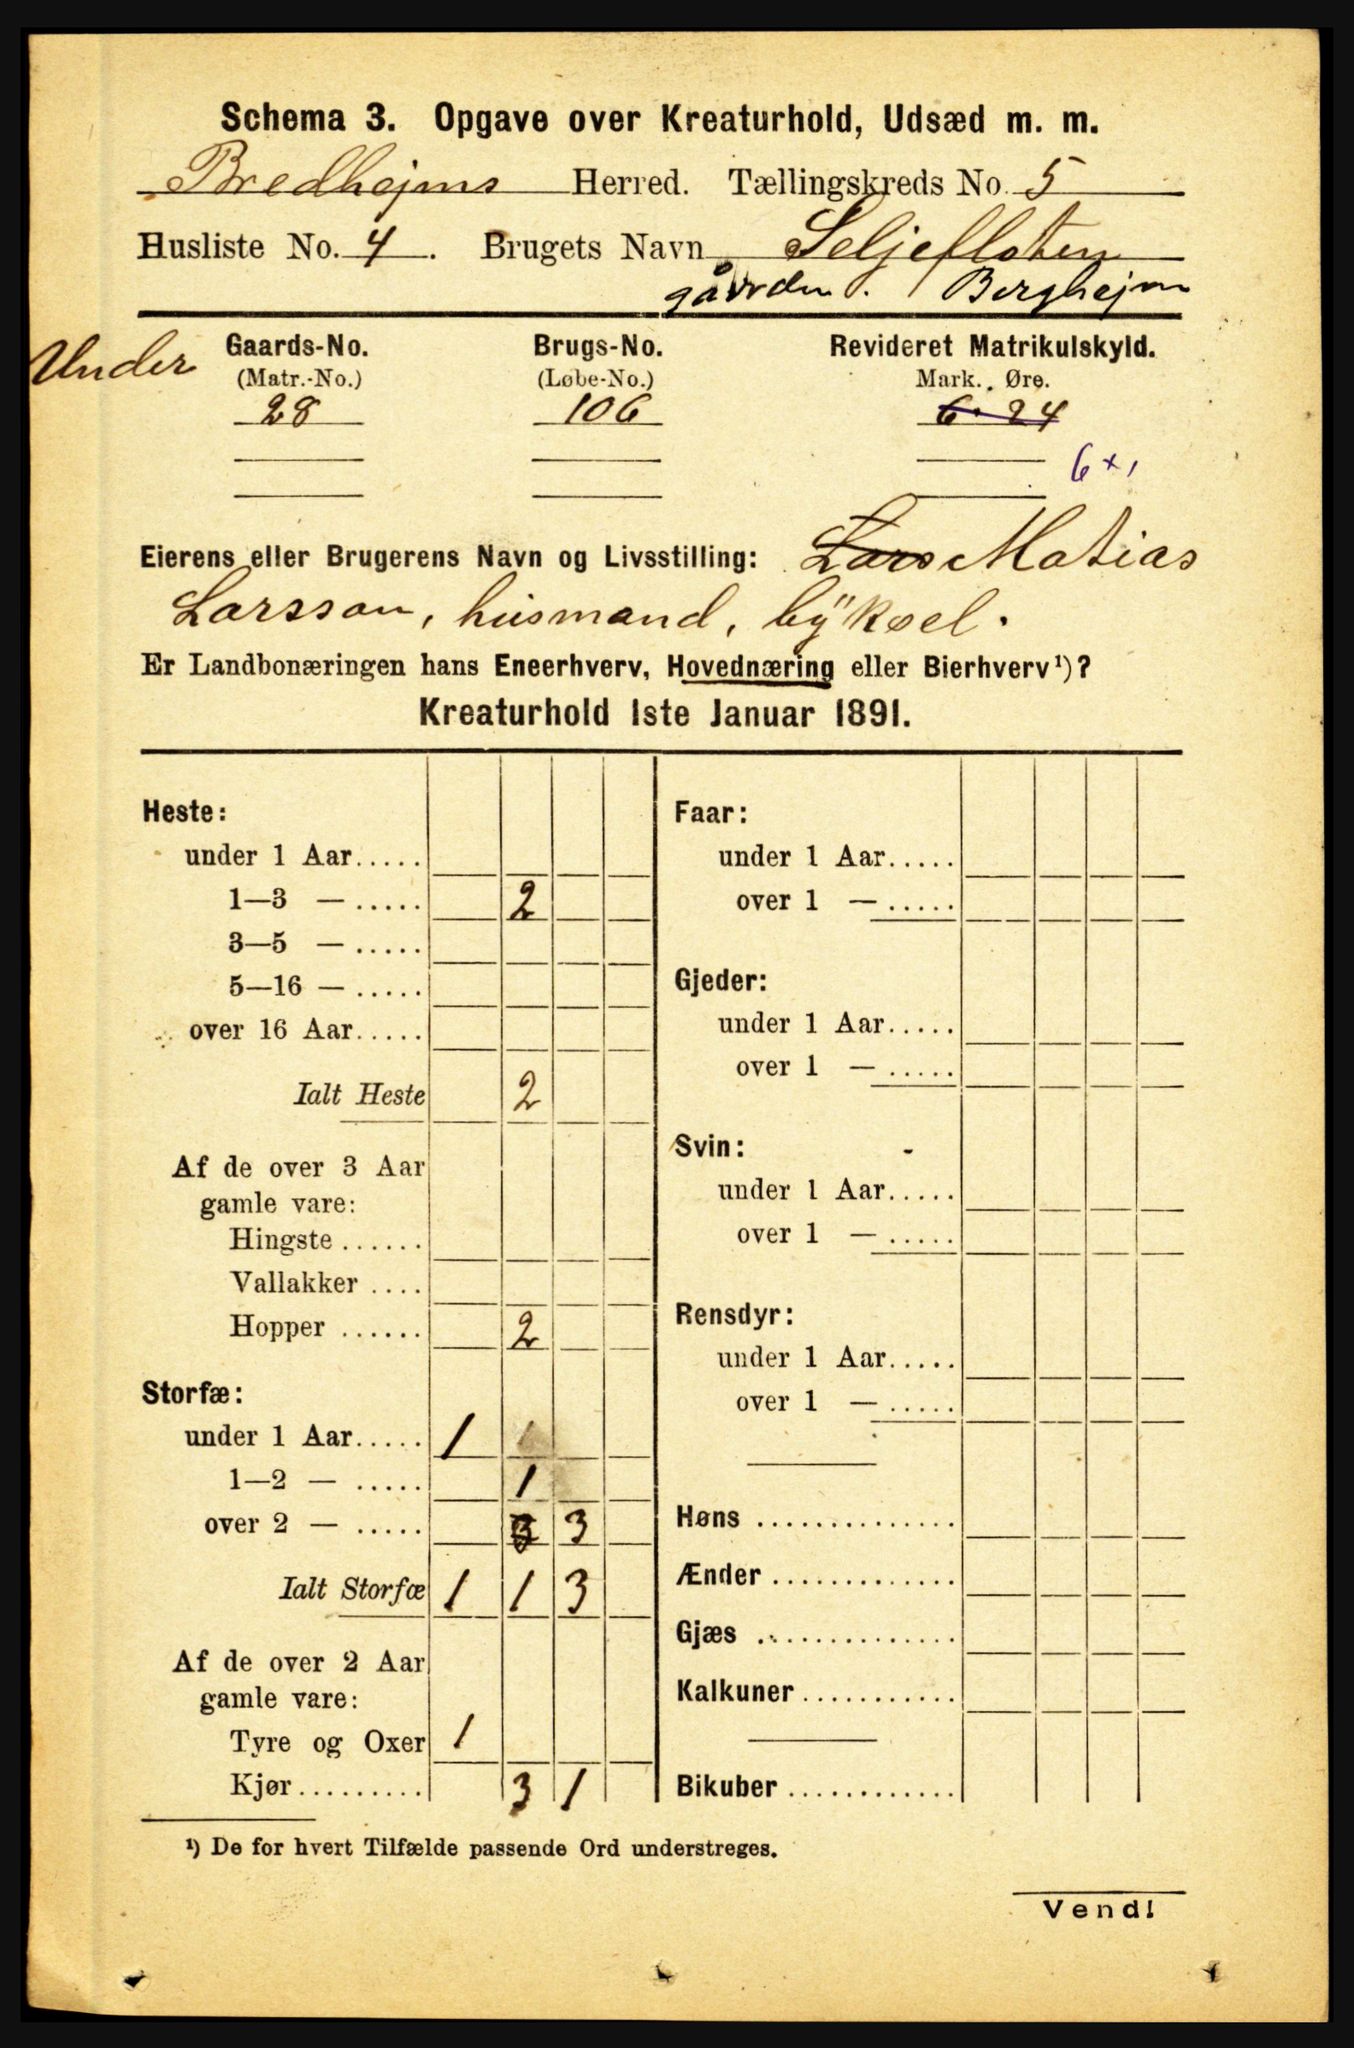 Schema 3. Opgave over Kreaturhold, Udsæd m. m.
Bredhejms Herred. Tællingskreds No. 5
Husliste No. 4. Brugets Navn Seljefloten
Berghejm
Under
Gaards-No. Brugs-No. Revideret Matrikulskyld.
(Matr.-No.) (Løbe-No.) Mark. Øre.
28 106 6. 24
6 +
Eierens eller Brugerens Navn og Livsstilling: Lars Matias
Larsson, husmand, bÿksel.
Er Landbonæringen hans Eneerhverv, Hovednæring eller Bierhverv¹)?
Kreaturhold 1ste Januar 1891.
Heste:
under 1 Aar.....
1—3 — ..... 2
3—5 — .....
5—16 — .....
over 16 Aar.....
Ialt Heste 2
Af de over 3 Aar
gamle vare:
Hingste ......
Vallakker ....
Hopper ...... 2
Storfæ:
under 1 Aar..... 1
1—2 — ..... 1
over 2 — ..... 3 3
Ialt Storfæ 1 1 3
Af de over 2 Aar
gamle vare:
Tyre og Oxer 1
Kjør......... 3 1
Faar:
under 1 Aar.....
over 1 — .....
Gjeder:
under 1 Aar.....
over 1 — .....
Svin:
under 1 Aar.....
over 1 — .....
Rensdyr:
under 1 Aar.....
over 1 — .....
Høns ..............
Ænder .............
Gjæs ..............
Kalkuner...........
Bikuber ............
¹) De for hvert Tilfælde passende Ord understreges.
Vend!